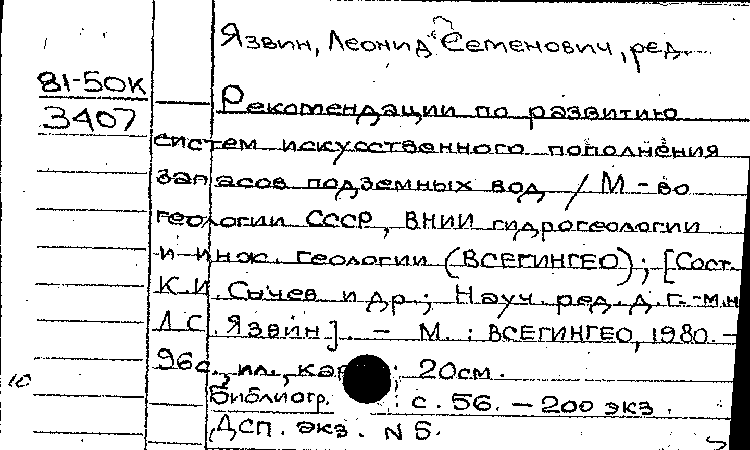 Язвин, Леонид Семенович, ред.
81-50К
3407
Рекомендации по развитию
систем искусственного пополнения
запасов подземных вод / М-во
геологии СССР, ВНИИ гидрогеологии
и инж. геологии (ВСЕГИНГЕО); [Сост.
К.И. Сычев и др.; Науч. ред. д.г.-м.н
Л.С. Язвин]. - М.: ВСЕГИНГЕО, 1980. -
96с., ил., : 20см.
10
Библиогр. : с. 56. - 200 экз.
ДСП. экз. N 5.